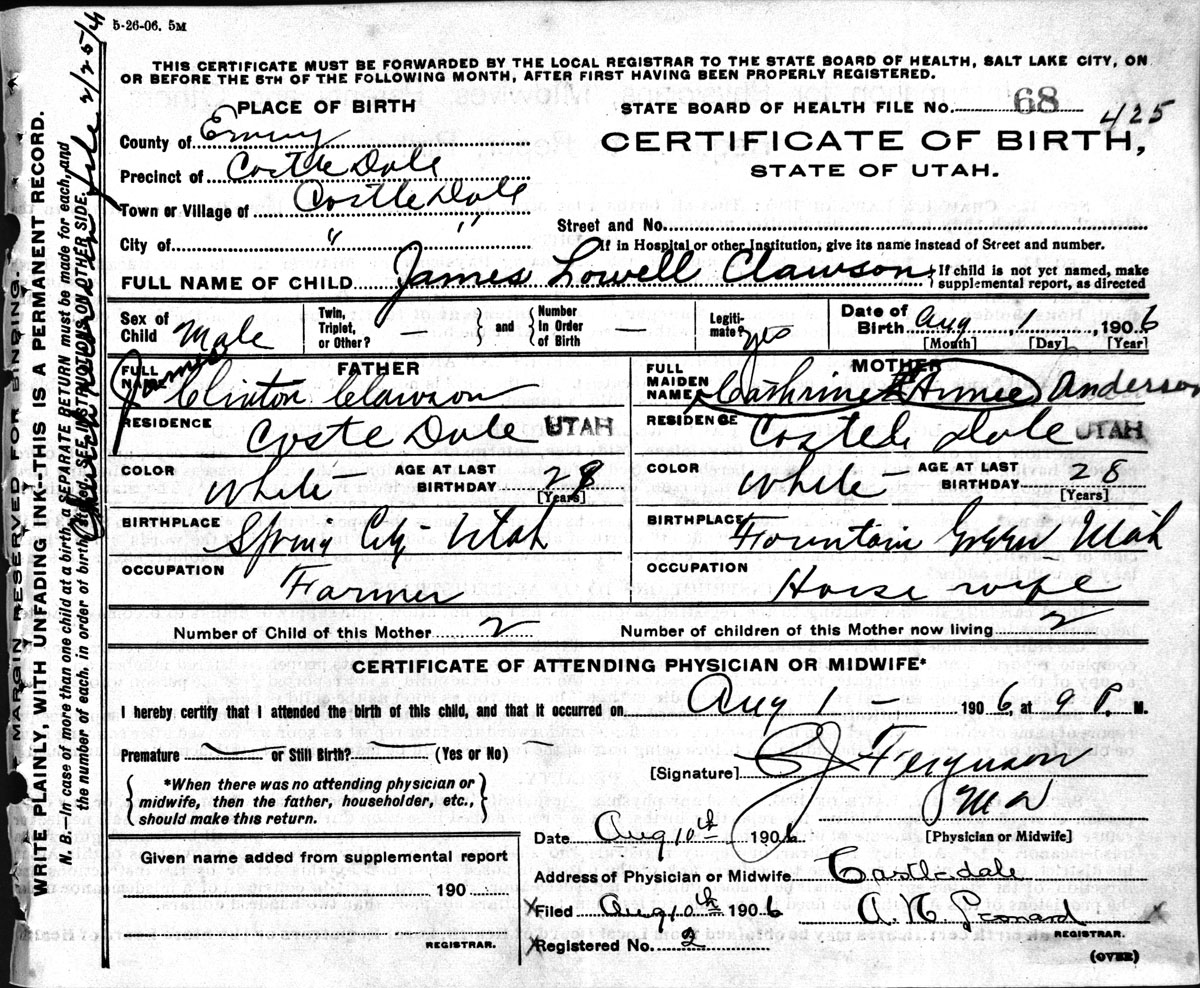 5-26-06. 5M
THIS CERTIFICATE MUST BE FORWARDED BY THE LOCAL REGISTRAR TO THE STATE BOARD OF HEALTH, SALT LAKE CITY, ON
OR BEFORE THE 5TH OF THE FOLLOWING MONTH, AFTER FIRST HAVING BEEN PROPERLY REGISTERED.
PLACE OF BIRTH
STATE BOARD OF HEALTH FILE NO. 68
425
County of Emery
CERTIFICATE OF BIRTH,
STATE OF UTAH.
Precinct of Costle Dale
Town or Village of Costle Dale
Street and No.
City of " "
If in Hospital or other Institution, give its name instead of Street and number.
FULL NAME OF CHILD James Lowell Clawson { If child is not yet named, make
supplemental report, as directed
Sex of Child Male Twin, Triplet, or Other? — } and { Number In Order of Birth — Legiti- mate? yes Date of Birth Aug 1, 1906
[Month] [Day] [Year]
FATHER MOTHER
FULL NAME James Clinton Clawson FULL MAIDEN NAME Cathrine Aimee Anderson
RESIDENCE Coste Dale UTAH RESIDENCE Costele Dale UTAH
COLOR White AGE AT LAST BIRTHDAY 28 [Years] COLOR White AGE AT LAST BIRTHDAY 28 [Years]
BIRTHPLACE Spring City Utah BIRTHPLACE Fountain Green Utah
OCCUPATION Farmer OCCUPATION House wife
Number of Child of this Mother 2 Number of children of this Mother now living 2
CERTIFICATE OF ATTENDING PHYSICIAN OR MIDWIFE*
I hereby certify that I attended the birth of this child, and that it occurred on Aug 1 — 1906, at 9 P. M.
Premature — or Still Birth? (Yes or No)
[Signature] Ferguson
M D
[Physician or Midwife]
{ *When there was no attending physician or
midwife, then the father, householder, etc.,
should make this return. }
Date Aug 10th 1906
Given name added from supplemental report
190
REGISTRAR.
Address of Physician or Midwife Castledale
X Filed Aug 10th 1906 A. N. Leonard X
REGISTRAR.
X Registered No. 2
(OVER)
MARGIN RESERVED FOR BINDING.
WRITE PLAINLY, WITH UNFADING INK--THIS IS A PERMANENT RECORD.
N. B.—In case of more than one child at a birth, a SEPARATE RETURN must be made for each, and
the number of each, in order of birth, stated. SEE INSTRUCTIONS ON OTHER SIDE.
on file 2/25/4